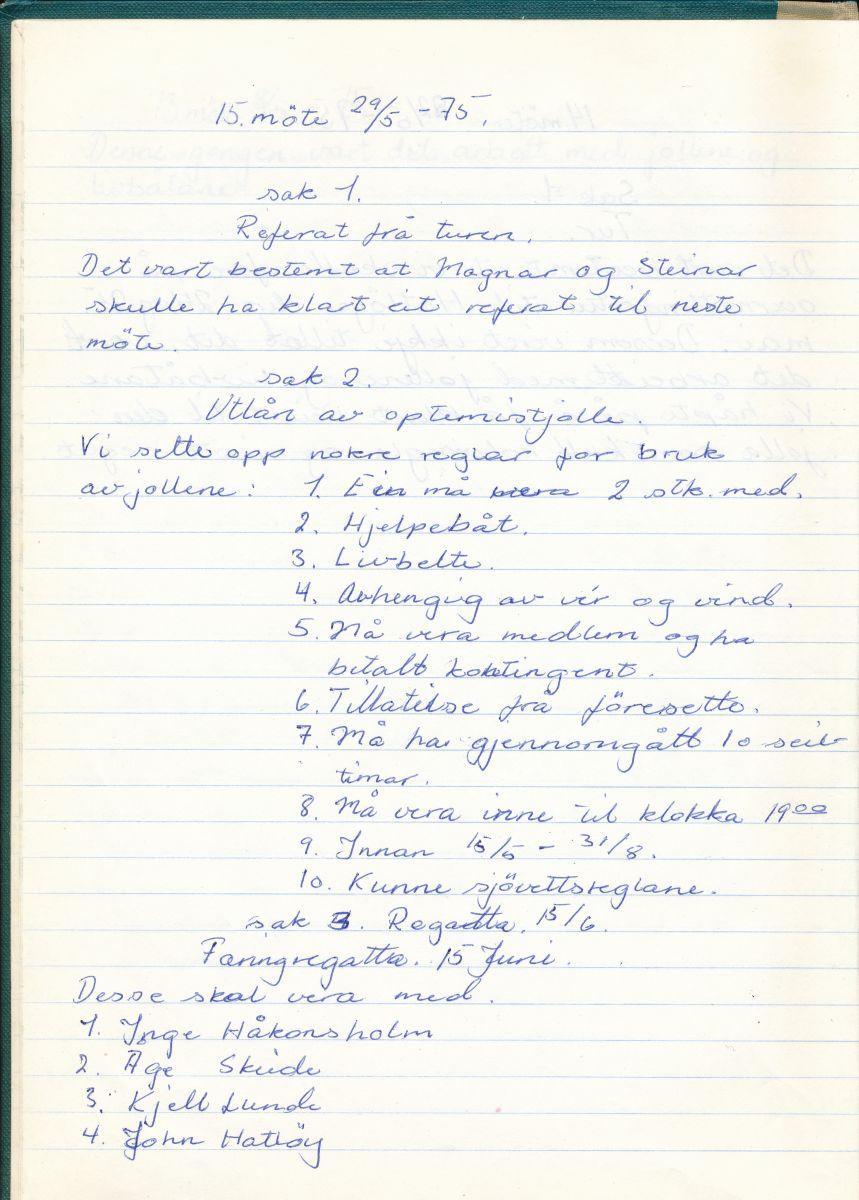 15. möte 29/5 - 75.
sak 1.
Referat frå turen.
Det vart bestemt at Magnar og Steinar
skulle ha klart eit referat til neste
möte.
sak 2.
Utlån av optemistjolle.
Vi sette opp nokre reglar for bruk
av jollene: 1. Ein må vera 2 stk. med.
2. Hjelpebåt.
3. Livbelte.
4. Avhengig av vér og vind.
5. Må vera medlem og ha
betalt kontingent.
6. Tillatelse frå föresette.
7. Må ha gjennomgått 10 seil-
timar.
8. Må vera inne til klokka 1900
9. Innan 15/5 - 31/8.
10. Kunne sjövettsreglane.
sak 3. Regatta. 15/6.
Færingregatta. 15 Juni.
Desse skal vera med.
1. Inge Håkonsholm
2. Åge Skeide
3. Kjell Lunde
4. John Hatlöy